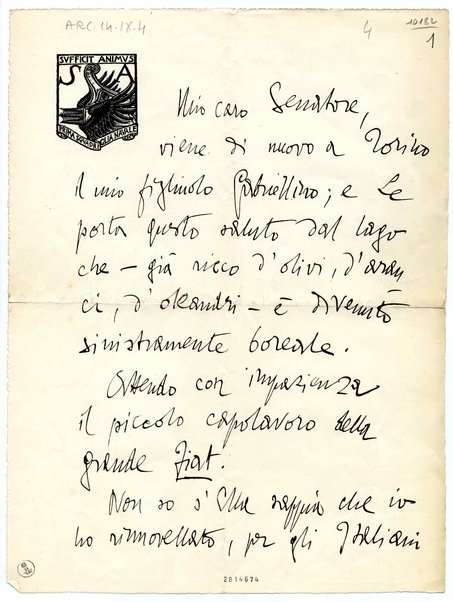 ARC.14.IX.4
4
10192
1
SVFFICIT ANIMVS
S A
PRIMA SQVADRIGLIA NAVALE
Mio caro Senatore,
viene di nuovo a Torino
il mio figliuolo Gabriellino; e Le
porta questo saluto dal lago
che - già ricco d'olivi, d'aran
ci, d'oleandri - è divenuto
sinistramente boreale.
Attendo con impazienza
il piccolo capolavoro della
grande Fiat.
Non so s'Ella sappia che io
ho rinnovellato, per gli Italiani
2814674